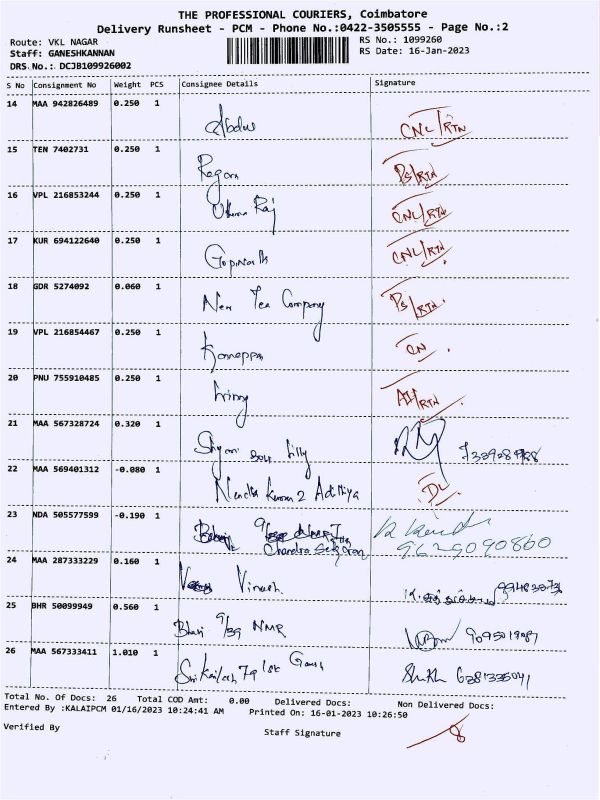 THE PROFESSIONAL COURIERS, Coimbatore
Delivery Runsheet - PCM - Phone No.:0422-3505555 - Page No.:2
Route: VKL NAGAR
RS No.: 1099260
Staff: GANESHKANNAN
RS Date: 16-Jan-2023
DRS No.: DCJB109926002
S No Consignment No Weight PCS Consignee Details Signature
14 MAA 942826489 0.250 1
Abdul CNL/RTN
15 TEN 7402731 0.250 1
Ps/RTN
16 VPL 216853244 0.250 1
Raj CNL/RTN
17 KUR 694122640 0.250 1
Gopinath CNL/RTN.
18 GDR 5274092 0.060 1
New Tea Company Ps/RTN.
19 VPL 216854467 0.250 1
CN.
20 PNU 755910485 0.250 1
AH/RTN
21 MAA 567328724 0.320 1
Shyam
22 MAA 569401312 -0.080 1
2 Adithiya DL
23 NDA 505577599 -0.190 1
Chandra Sekaran 9629090860
24 MAA 287333229 0.160 1
25 BHR 50099949 0.560 1
9/39 NMR
26 MAA 567333411 1.010 1
Total No. Of Docs: 26 Total COD Amt: 0.00 Delivered Docs: Non Delivered Docs:
Entered By :KALAIPCM 01/16/2023 10:24:41 AM Printed On: 16-01-2023 10:26:50
Verified By
Staff Signature
8